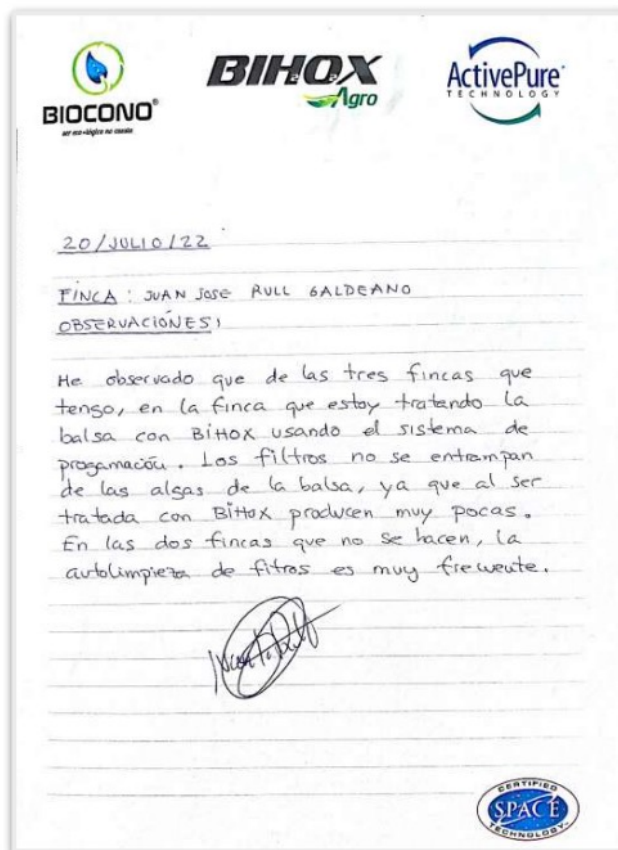 BIOCONO®
ser eco-lógico no cuesta
BIH2O2X
Agro
ActivePure®
TECHNOLOGY
20/JULIO/22
FINCA: JUAN JOSE RULL GALDEANO
OBSERVACIONES:
He observado que de las tres fincas que
tengo, en la finca que estoy tratando la
balsa con BiHOX usando el sistema de
progamación. Los filtros no se entrampan
de las algas de la balsa, ya que al ser
tratada con BiHOX producen muy pocas.
En las dos fincas que no se hacen, la
autolimpieza de fitros es muy frecuente.
CERTIFIED
SPACE
TECHNOLOGY™